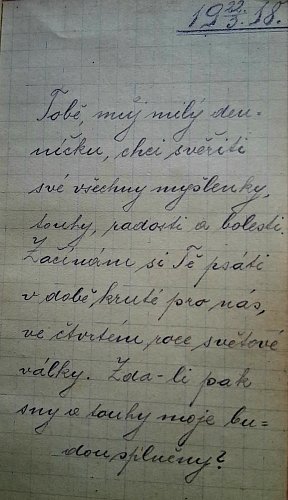 19 22/3. 18.
Tobě, můj milý den-
níčku, chci svěřiti
své všechny myšlenky,
touhy, radosti a bolesti.
Začínám si Tě psáti
v době kruté pro nás,
ve čtvrtém roce světové
války. Zda-li pak
sny a touhy moje bu-
dou splněny?